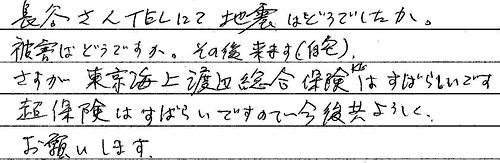 長谷さんTELにて地震はどうでしたか。
被害はどうですか。その後来ます(自宅)
さすが東京海上渡辺総合保険KKはすばらしいです
超保険はすばらいですので今後共よろしく、
お願いします。